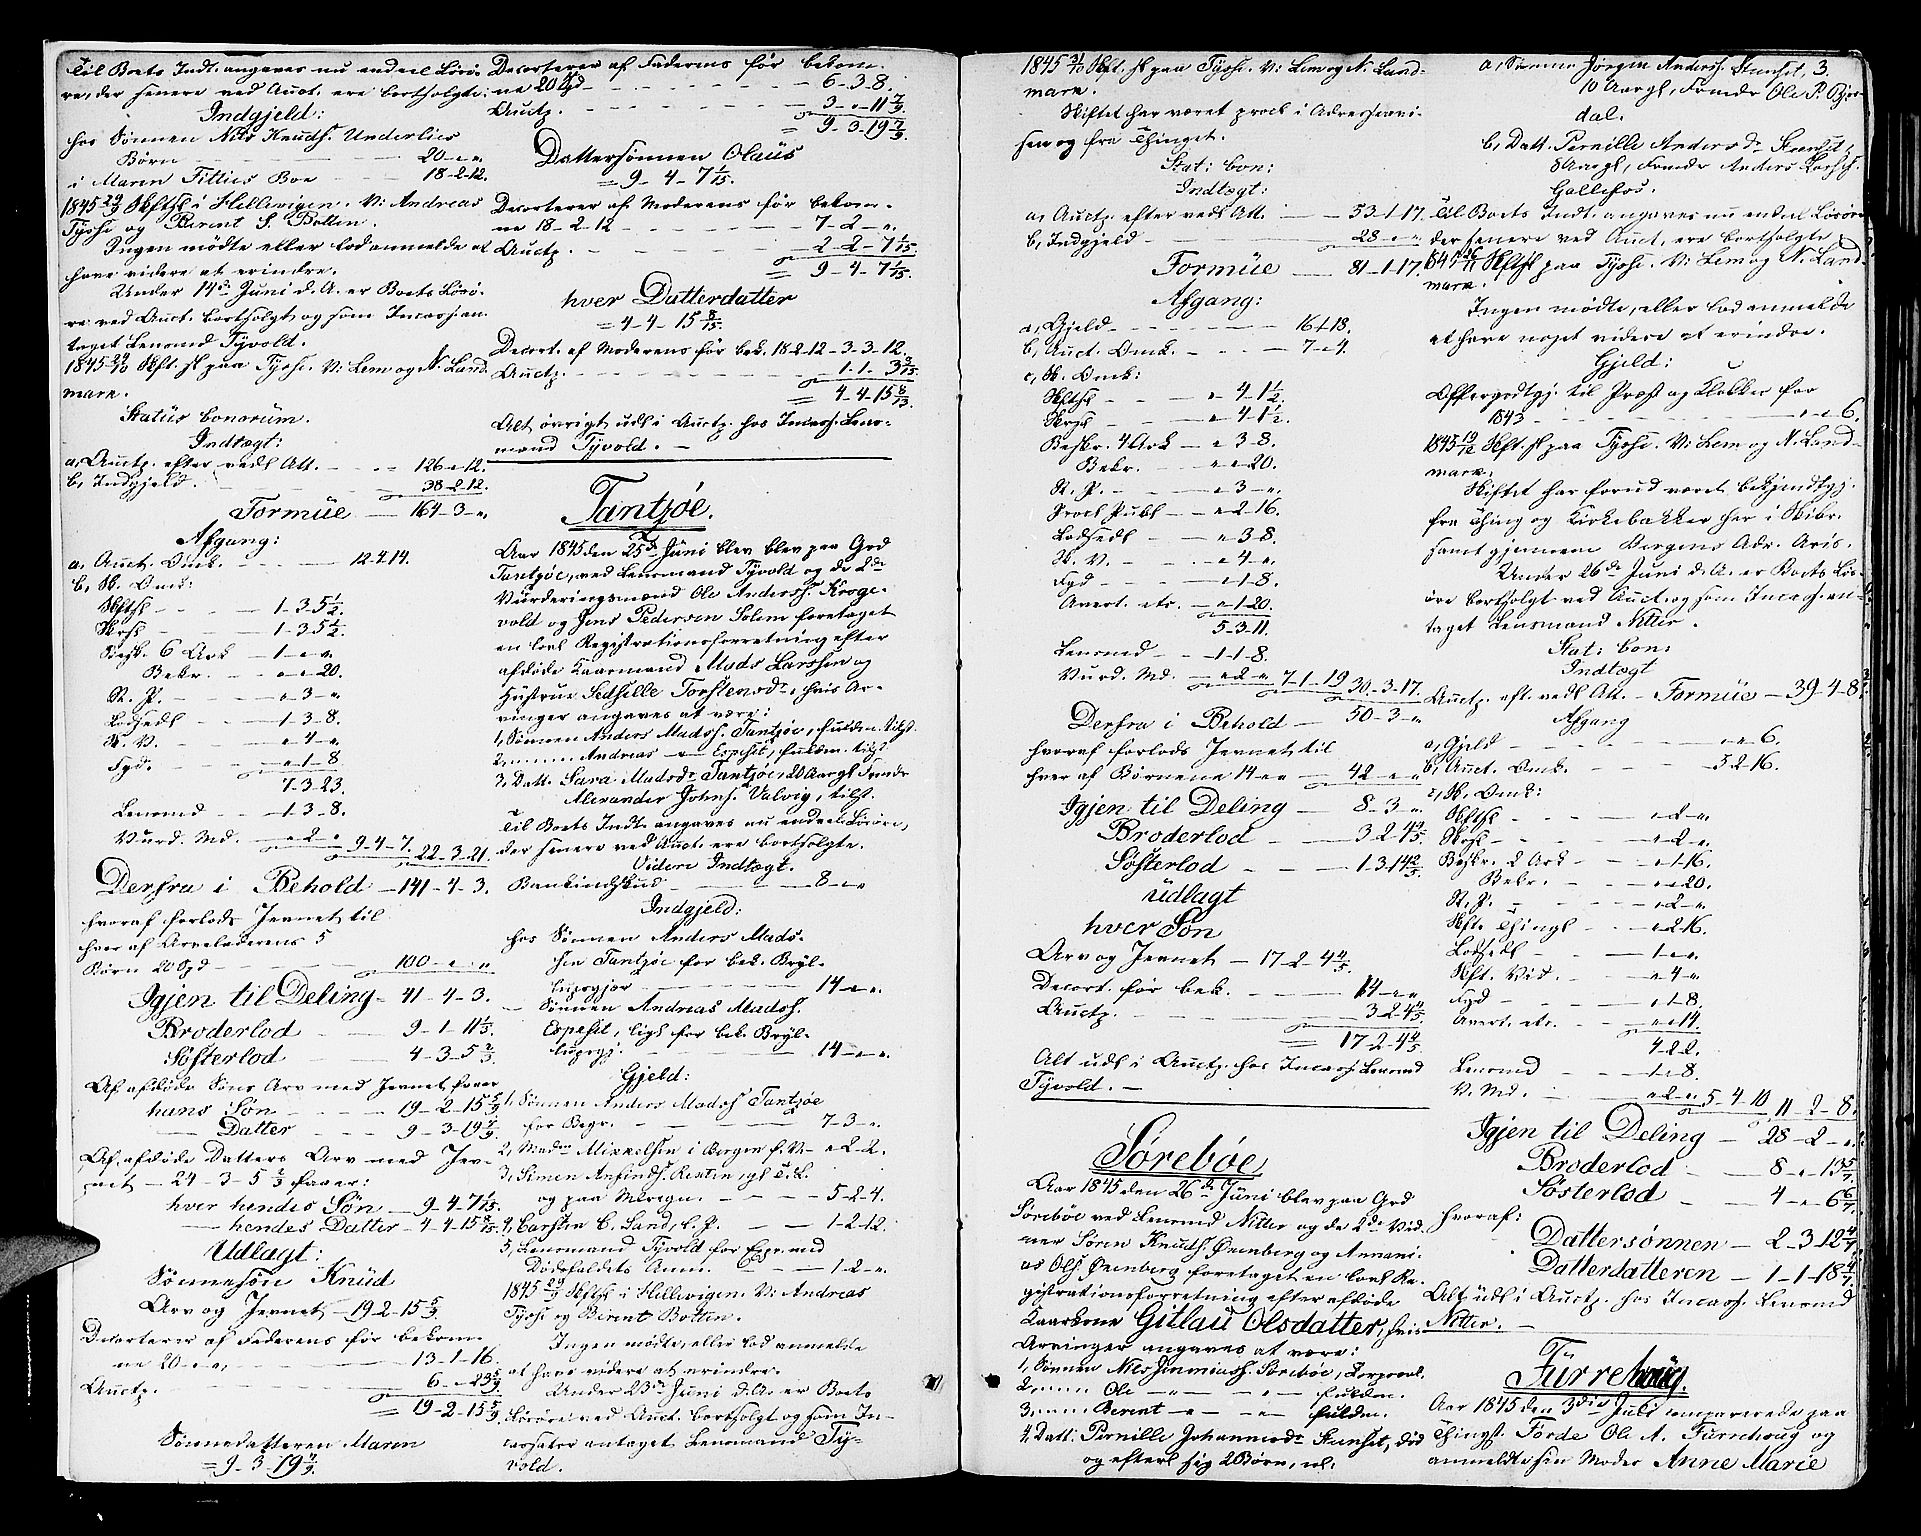 Til Boets Indt. angaves nu endeel Løsø-
re, der senere ved Auct. ere bortsolgte.
Indgjeld:
hos Sønnen Nils Knuds. Underlies
Børn 20-"-".
i Maren Titties Boe 18-2-12.
1845 29/9 Skftsl i Hellevigen. V: Andreas
Tysse og Berent S. Botten.
Ingen mödte eller lod anmelde at
have videre at erindre.
Under 14de Juni d. A. er Boets Løsö-
re ved Auct. bortsolgt og som Incassian-
taget Lensmd Tyvold.
1845 29/10 Skft. sl paa Tysse. V: Lem og N. Land-
mark.
Status bonorum.
Indtægt:
a, Auctp. efter vedl Att. 126-"-12.
b, Indgjeld. 38-2-12.
Formüe 164-3-".
Afgang:
a. Auct. Omk. 12-4-14.
b, Sk. Omk:
Skftsl 1-3-5½.
Skrsl 1-3-5½.
Beskr. 6 Ark 1-"-".
Bekr. "-"-20.
St. P. "-3-".
Lodsedl 1-3-8.
Sk. V. "-4-".
Fyd. "-1-8
7-3-23.
Lensmd 1-3-8.
Vurd. Md. "-2-" 9-4-7. 22-3-21.
Derfra i Behold 141-4-3.
hvoraf forlods Jevnet til
hver af Arveladerens 5
Börn 20 Spd 100-"-"
Igjen til Deling 41-4-3.
Broderlod 9-1-11⅓.
Søsterlod 4-3-5⅔.
Af afdøde Søns Arv med Jevnet faaer
hans Søn 19-2-15 5/9.
Datter 9-3-19 7/9.
Af afdøde Datters Arv med Jev-
net 24-3-5⅔ faaer:
hver hendes Søn 9-4-7 1/15.
hendes Datter 4-4-15 8/15.
Udlagt:
Sønnesøn Knüd
Arv og Jevnet 19-2-15 5/9
Decorterer af Faderens før bekom-
ne 20-"-". 13-1-16.
Auctp. 6-"-23 5/9.
= 19-2-15 5/9.
Sønnedatteren Maren
= 9-3-19 7/9.
Decorterer af Faderens før bekom-
ne 20 Spd 6-3-8.
Auctp. 3-"-11 7/9.
= 9-3-19 7/9.
Dattersønnen Olaüs
= 9-4-7 1/15.
Decorterer af Moderens før bekom-
ne 18-2-12 7-2-".
Auctp. 2-2-7 1/15.
= 9-4-7 1/15.
hver Datterdatter
= 4-4-15 8/15.
Decort. af Moderens før bek. 18-2-12 - 3-3-12.
Auctp. 1-1-3 8/15.
= 4-4-15 8/15.
Alt øvrigt udl i Auctp. hos Incass. Lens-
mand Tyvold. —
Tantzøe.
Aar 1845 den 25de Jüni blev blev paa Grd
Tantzöe, ved Lensmand Tyvold og de 2de
Vurderingsmænd Ole Anderss. Kroge-
vold og Jens Pedersen Solem foretaget
en lovl Registrationsforretning efter
afdöde Kaarmand Mads Larssen og
Hüstrue Sedselle Torstensdr, hvis Ar-
vinger angaves at være:
1, Sønnen Anders Madss. Tantzøe, fulden. tilst.
2, —— Andreas — Espeset, fuldm. tilst
3, Datt. Sara Madsdr Tantzöe, 20 Aargl Frmdr
Alexander Johns. Valvig, tilst.
Til Boets Indt. angaves nu endeel Löröre,
der senere ved Auct. ere bortsolgte.
Videre Indtægt.
Bankindskud 8-"-"
Indgjeld:
hos Sønnen Anders Mads-
sen Tantzøe for bek. Bryl-
lupsgjør 14-"-".
— Sønnen Andreas Madss.
Espeset, ligl for bek. Bryl-
lupsgj. 14-"-".
Gjeld:
1, Sønnen Anders Madss Tantzøe
for Begr. 7-3-".
2, Madm Mikkelsen i Bergen f. V. "-2-2.
3, Simen Anfinds. Restin, gl T. L.
og paa Meregn. 5-2-4.
4, Carsten C. Sand, l. P. 1-2-12.
5, Lensmand Tyvold for Expr. med
Dødsfaldets Anm. 1-2-".
1845 29/9 Skftsl i Hellevigen. V: Andreas
Tysse og Berent Botten.
Ingen mödte, eller lod anmelde
at have videre at erindre.
Under 23de Juni d. A. er Boets
Lösöre ved Auct. bortsolgt og som In-
cassator antaget Lensmand Ty-
vold.
1845 31/10 Skft. sl paa Tysse. V: Lem og N. Land-
mark.
Skiftet har været procl i Adresseavi-
sen og fra Thinget.
Stat: bon:
Indtægt:
a, Auctp. efter vedl Att. 53-1-17.
b, Indgjeld 28-"-"
Formüe 81-1-17.
Afgang:
a, Gjeld 16-1-18.
b, Auct. Omk. 7-"-4.
c, Sk. Omk:
Skftsl "-4-1½.
Skrsl "-4-1½.
Beskr. 4 Ark "-3-8.
Bekr. "-"-20.
St. P. "-3-".
Procl Publ "-2-16.
Lodsedl "-3-8.
Sk. V. "-4-".
Fyd "-1-8.
Avert. etc. "-1-20.
5-3-11.
Lensmd 1-1-8.
Vurd. Md. "-2-" 7-1-19 30-3-17.
Derfra i Behold 50-3-"
hvoraf forlods Jevnet til
hver af Börnene 14-"-" 42-"-"
Igjen til Deling 8-3-".
Broderlod 3-2-4 4/5.
Søsterlod 1-3-14 2/5.
üdlagt
hver Søn
Arv og Jevnet 17-2-4 4/5.
Decort. før bek. 14-"-"
Auctp. 3-2-4 4/5.
= 17-2-4 4/5.
Alt udl i Auctp. hos Incass. Lensmd
Tyvold. —
Sørebøe.
Aar 1845 den 26de Jüni blev paa Grd
Sørebøe ved Lensmd Nitter og de 2de Vid-
ner Søren Knuds. Ørenberg og Annani-
as Ols. Ørenberg foretaget en lovl Re-
gistrationsforretning efter afdøde
Kaarkone Gitlau Olsdatter, hvis
Arvinger angaves at være:
1, Sønnen Nils Jinmindss. Sørebøe, Corporal.
2, —— Ole — " — " — fulden.
3, —— Berent — " — " — fulden.
4, Datt: Pernille Johannesdr Stenset, död
og efterl sig 2 Børn, nl.
a, Sønnen Jörgen Anderss. Stenset, 3.
10 Aargl, Frmdr Ole P. Bjor-
dal.
b, Datt. Pernille Andersdr Stenset,
8 Aargl, Frmdr Anders Larss.
Gallefos.
Til Boets Indt. angaves nu endeel Lösöre
der senere ved Auct. ere bortsolgte
1845 26/11 Skftsl paa Tysse. V: Lem og N. Land-
mark.
Ingen mödte, eller lod anmelde
at have noget videre at erindre.
Gjeld:
Offergodtgj. til Præst og Klokker for
1843 "-"-6.
1845 19/12 Skft. sl paa Tysse. V: Lem og N. Land-
mark.
Skiftet har forud været bekjendtgj.
fra Thing og Kirkebakker her i Skibr.
samt gjennem Bergens Adr. Avis.
Under 26de Juni d. A. er Boets Lös-
öre bortsolgt ved Auct. og som Incass. an-
taget Lensmand Nitter.
Stat: bon:
Indtægt
Auctp. eft. vedl Att. — Formüe 39-4-8.
Afgang
a, Gjeld "-"-6.
b, Auct. Omk. 5-2-16.
c, Sk. Omk:
Skftsl "-2-".
Skrsl "-2-".
Beskr. 2 Ark "-1-16.
Bekr. "-"-20.
St. P. "-2-".
Skft. Thingl "-2-16.
Lodsedl 1-"-.
Skft. Vid. "-4-"
Fyd "-1-8.
Avert. etc. "-"-14.
4-2-2.
Lensmd 1-"-8.
V. Md. "-2-" 5-4-10 11-2-8.
Igjen til Deling 28-2-".
Broderlod 8-"-13 5/7.
Søsterlod 4-"-6 6/7.
hvoraf:
Dattersønnen 2-3-12 4/7.
Datterdatteren 1-1-18 4/7.
Alt udl i Auctp. hos Incass. Lensmd
Nitter. —
Fürrehoüg.
Aar 1845 den 3die Juli comparerede paa
Thingst. Förde Ole A. Fürrehoug og
anmeldte sin Moder Anne Marie